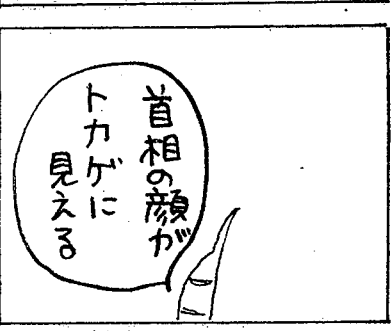 首相の顔が
トカゲに
見える